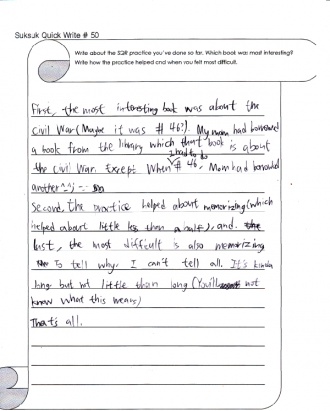 Suksuk Quick Write # 50
Write about the SQR practice you've done so far. Which book was most interesting?
Write how the practice helped and when you felt most difficult.
First, the most interesting book was about the
civil War (Maybe it was # 46?). My mom had borrowed
a book from the library which that book is about
I had to do
the civil War. Except When # 46, Mom had borrowed
another ^^;
Second, the practice helped about memorizing (which
helped about little less than a half), and
last, the most difficult is also memorizing
To tell why, I can't tell all. It's kinda
long but not little than long (You'll not
know what this means)
That's all.